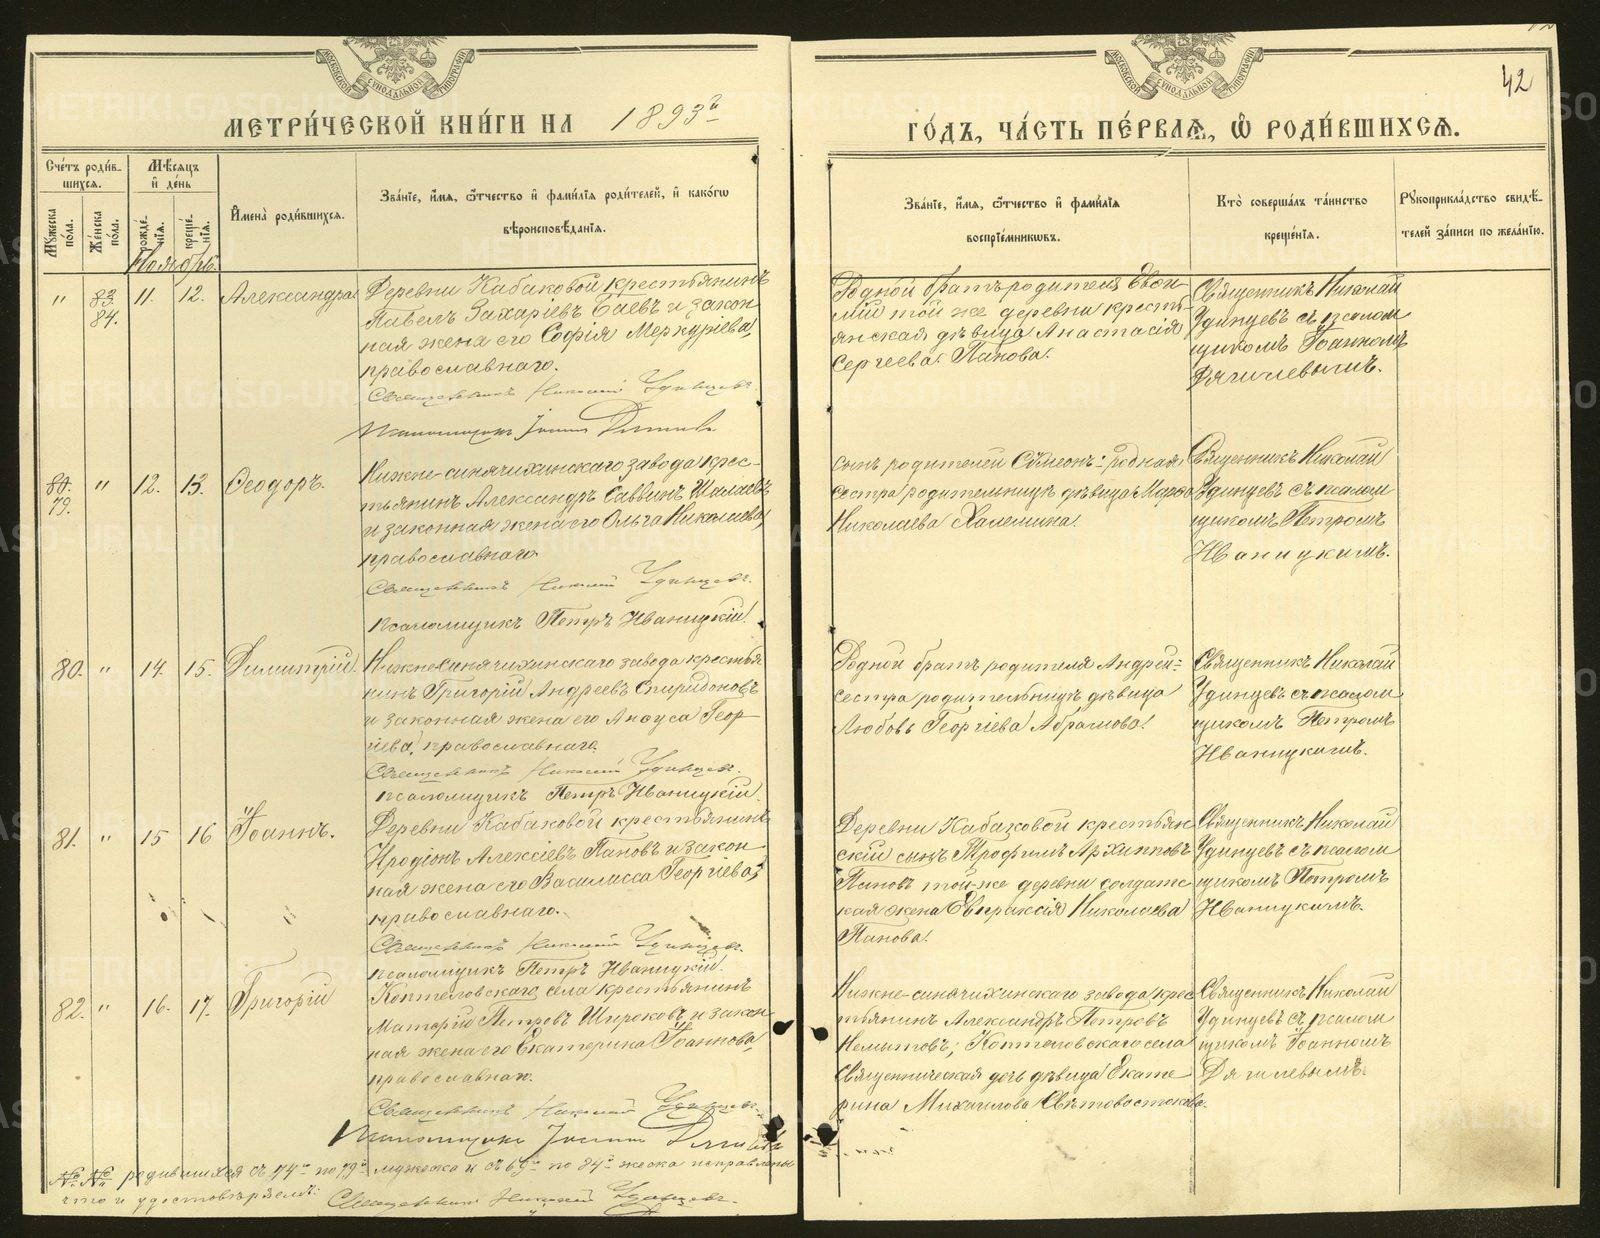 42
МОСКОВСКОЙ СѴНОДАЛЬНОЙ ТИПОГРАФІИ
МЕТРИ́ЧЕСКОЙ КНИ́ГИ НА 1893й
МОСКОВСКОЙ СѴНОДАЛЬНОЙ ТИПОГРАФІИ
ГО́ДЪ, ЧА́СТЬ ПЕ́РВАѦ, Ѡ҆ РОДИ́ВШИХСѦ.
Сче́тъ роди́в-
шихсѧ.
Мꙋ́жеска по́ла.
Же́нска по́ла.
Мѣ́сѧцъ
и҆ де́нь
рожде́-нїѧ.
креще́-нїѧ.
И҆мена̀ роди́вшихсѧ.
Зва́нїе, и҆́мѧ, ѻ҆́тчество и҆ фами́лїѧ роди́телей, и҆ како́гѡ
вѣроисповѣ́данїѧ.
Зва́нїе, и҆́мѧ, ѻ҆́тчество и҆ фами́лїѧ
воспрїе́мникѡвъ.
Кто̀ соверша́лъ та́инство
креще́нїѧ.
Рꙋкоприкла́дство свидѣ́-
телей за́писи по жела́нїю.
Ноябрь.
" 83. 84. 11. 12. Александра
Деревни Кабаковой крестьянинъ
Павелъ Захаріевъ Баевъ и закон
ная жена его Софія Меркуріева,
православнаго.
Священникъ Николай Удинцевъ.
Псаломщикъ Іоаннъ
Родной братъ родителя
той же деревни кресть-
янская дѣвица Анастасія
Сергеева Панова.
Священникъ Николай
Удинцевъ съ псалом
щикомъ Іоанномъ
Дягилевымъ.
80. 79. " 12. 13. Ѳеодоръ.
Нижне-синячихинскаго завода крес-
тьянинъ Александръ Саввинъ Шалаевъ
и законная жена его Ольга Николаева,
православнаго.
Священникъ Николай Удинцевъ.
Псаломщикъ Петръ Иваницкій.
сынъ родителей Сѵмеонъ: родная
сестра родительницы дѣвица Марѳа
Николаева Халемина.
Священникъ Николай
Удинцевъ съ псалом
щикомъ Петромъ
Иваницкимъ.
80. " 14. 15. Димитрій
Нижне-синячихинскаго завода крестья
нинъ Григорій Андреевъ Спиридоновъ
и законная жена его Анѳуса Геор
гіева, православнаго.
Священникъ Николай Удинцевъ.
псаломщикъ Петръ Иваницкій.
Родной братъ родителя Андрей:
сестра родительницы дѣвица
Любовь Георгіева Абрамова.
Священникъ Николай
Удинцевъ съ псалом
щикомъ Петромъ
Иваницкимъ.
81. " 15 16 Іоаннъ.
Деревни Кабаковой крестьянинъ
Иродіонъ Алексіевъ Пановъ и закон
ная жена его Василисса Георгіева,
православнаго.
Священникъ Николай Удинцевъ.
псаломщикъ Петръ Иваницкій.
Деревни Кабаковой крестьян
скій сынъ Трофимъ Архиповъ
Пановъ той-же деревни солдатс
кая жена Евпраксія Николаева
Панова.
Священникъ Николай
Удинцевъ съ псалом
щикомъ Петромъ
Иваницкимъ.
82. " 16. 17. Григорій
Коптеловскаго села крестьянинъ
Петровъ Широковъ и закон
ная жена его Екатерина Іоаннова,
православнаго.
Священникъ Николай Удинцевъ.
Псаломщикъ Іоаннъ Дягилевъ
Нижне-синячихинскаго завода крес
тьянинъ Александръ Петровъ
Немытовъ; Коптеловскаго села
Священническая дочь дѣвица Екате
рина Михаилова Свѣтовостокова.
Священникъ Николай
Удинцевъ съ псалом
щикомъ Іоанномъ
Дягилевымъ.
№№ родившихся съ 74го по 79й мужска и съ 69го по 84й женска исправлены
что и удостовѣряемъ: Священникъ Николай Удинцевъ.
METRIKI.GASO-URAL.RU